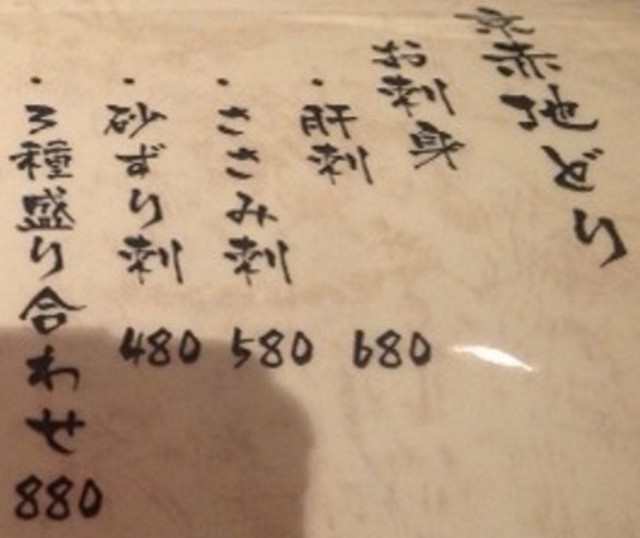 京赤地どり
お刺身
・肝刺 680
・ささみ刺 580
・砂ずり刺 480
・3種盛り合わせ 880